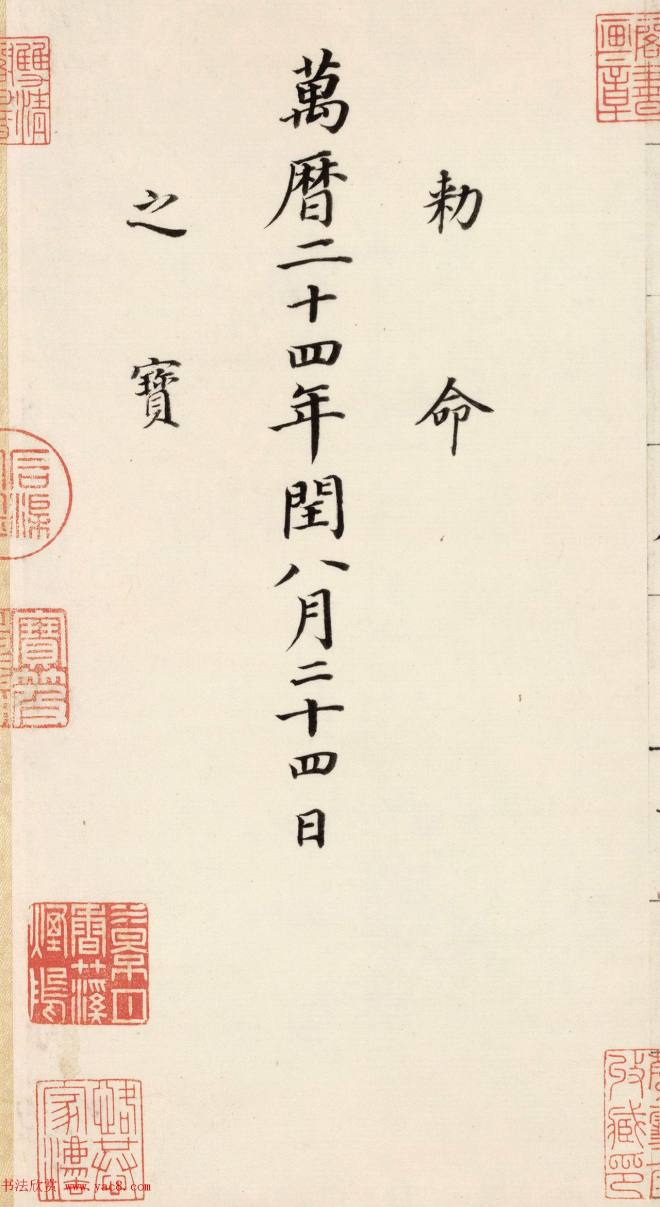 勅命
萬曆二十四年閏八月二十四日
之寶
書法欣赏 www.yac8.com